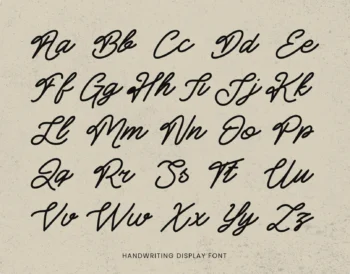 Aa Bb Cc Dd Ee
Ff Gg Hh Ii Jj Kk
Ll Mm Nn Oo Pp
Qq Rr Ss Tt Uu
Vv Ww Xx Yy Zz
HANDWRITING DISPLAY FONT